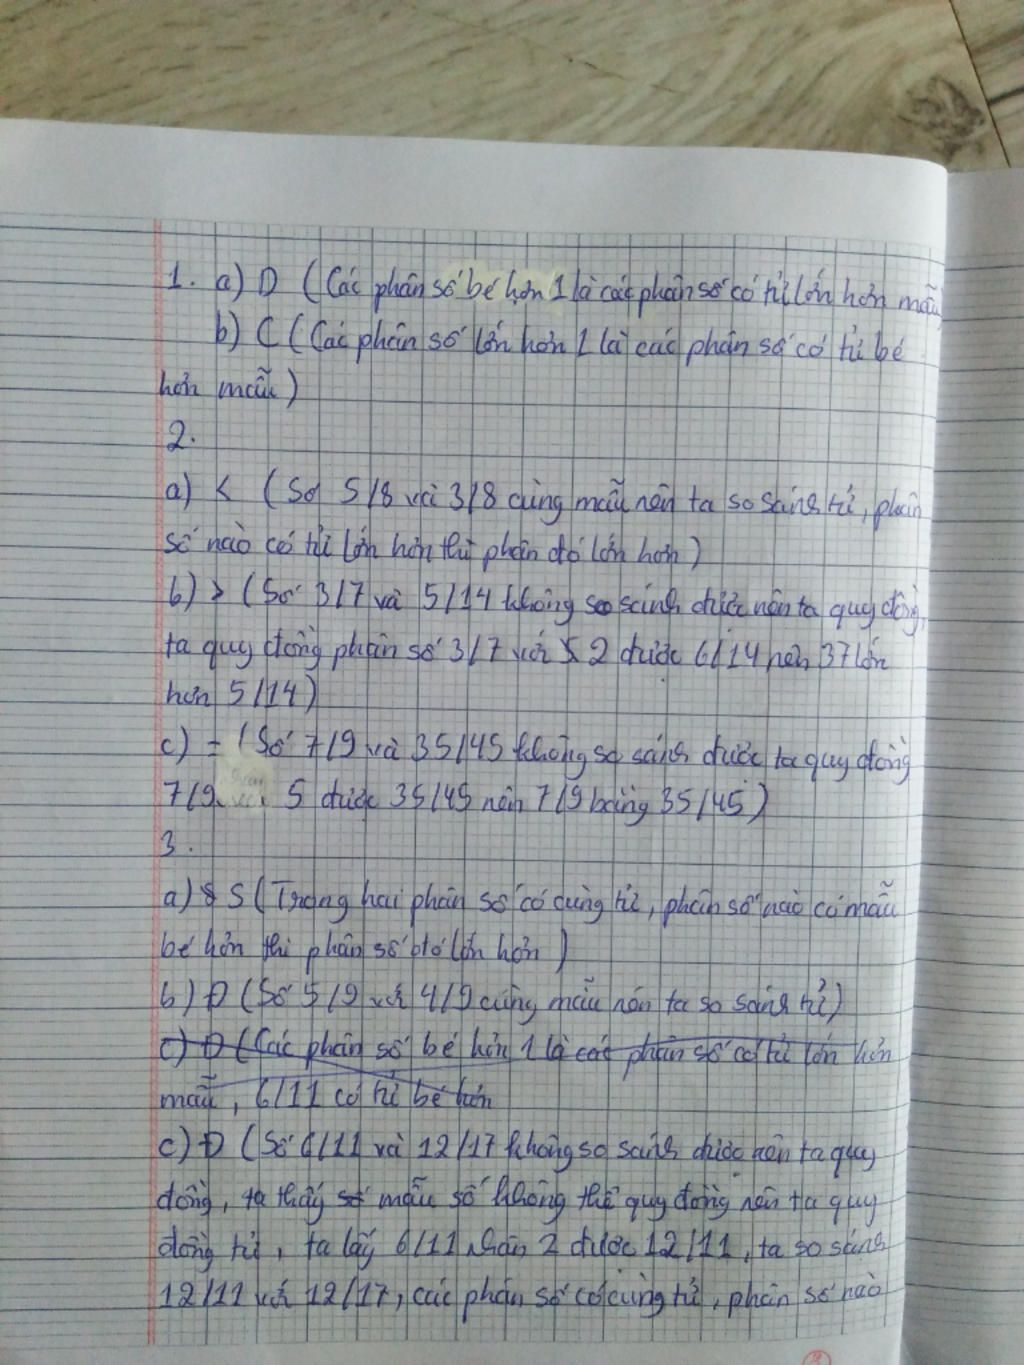 1. a) D (Các phân số bé hơn 1 là các phân số có tử lớn hơn mẫu)
b) C (Các phân số lớn hơn 1 là các phân số có tử bé
hơn mẫu)
2.
a) < (Số 5/8 và 3/8 cùng mẫu nên ta so sánh tử, phân
số nào có tử lớn hơn thì phân đó lớn hơn)
b) > (Số 3/7 và 5/14 không so sánh được nên ta quy đồng,
ta quy đồng phân số 3/7 với 2 được 6/14 nên 37 lớn
hơn 5/14)
c) = (Số 7/9 và 35/45 không so sánh được ta quy đồng
7/9 với 5 được 35/45 nên 7/9 bằng 35/45)
3.
a) S (Trong hai phân số có cùng tử, phân số nào có mẫu
bé hơn thì phân số đó lớn hơn)
b) Đ (Số 5/9 với 4/9 cùng mẫu nên ta so sánh tử)
c) Đ (Các phân số bé hơn 1 là các phân số có tử lớn hơn
mẫu, 6/11 có tử bé hơn
c) Đ (Số 6/11 và 12/17 không so sánh được nên ta quy
đồng, ta thấy số mẫu số không thể quy đồng nên ta quy
đồng tử, ta lấy 6/11 nhân 2 được 12/11, ta so sánh
12/11 với 12/17, các phân số có cùng tử, phân số nào